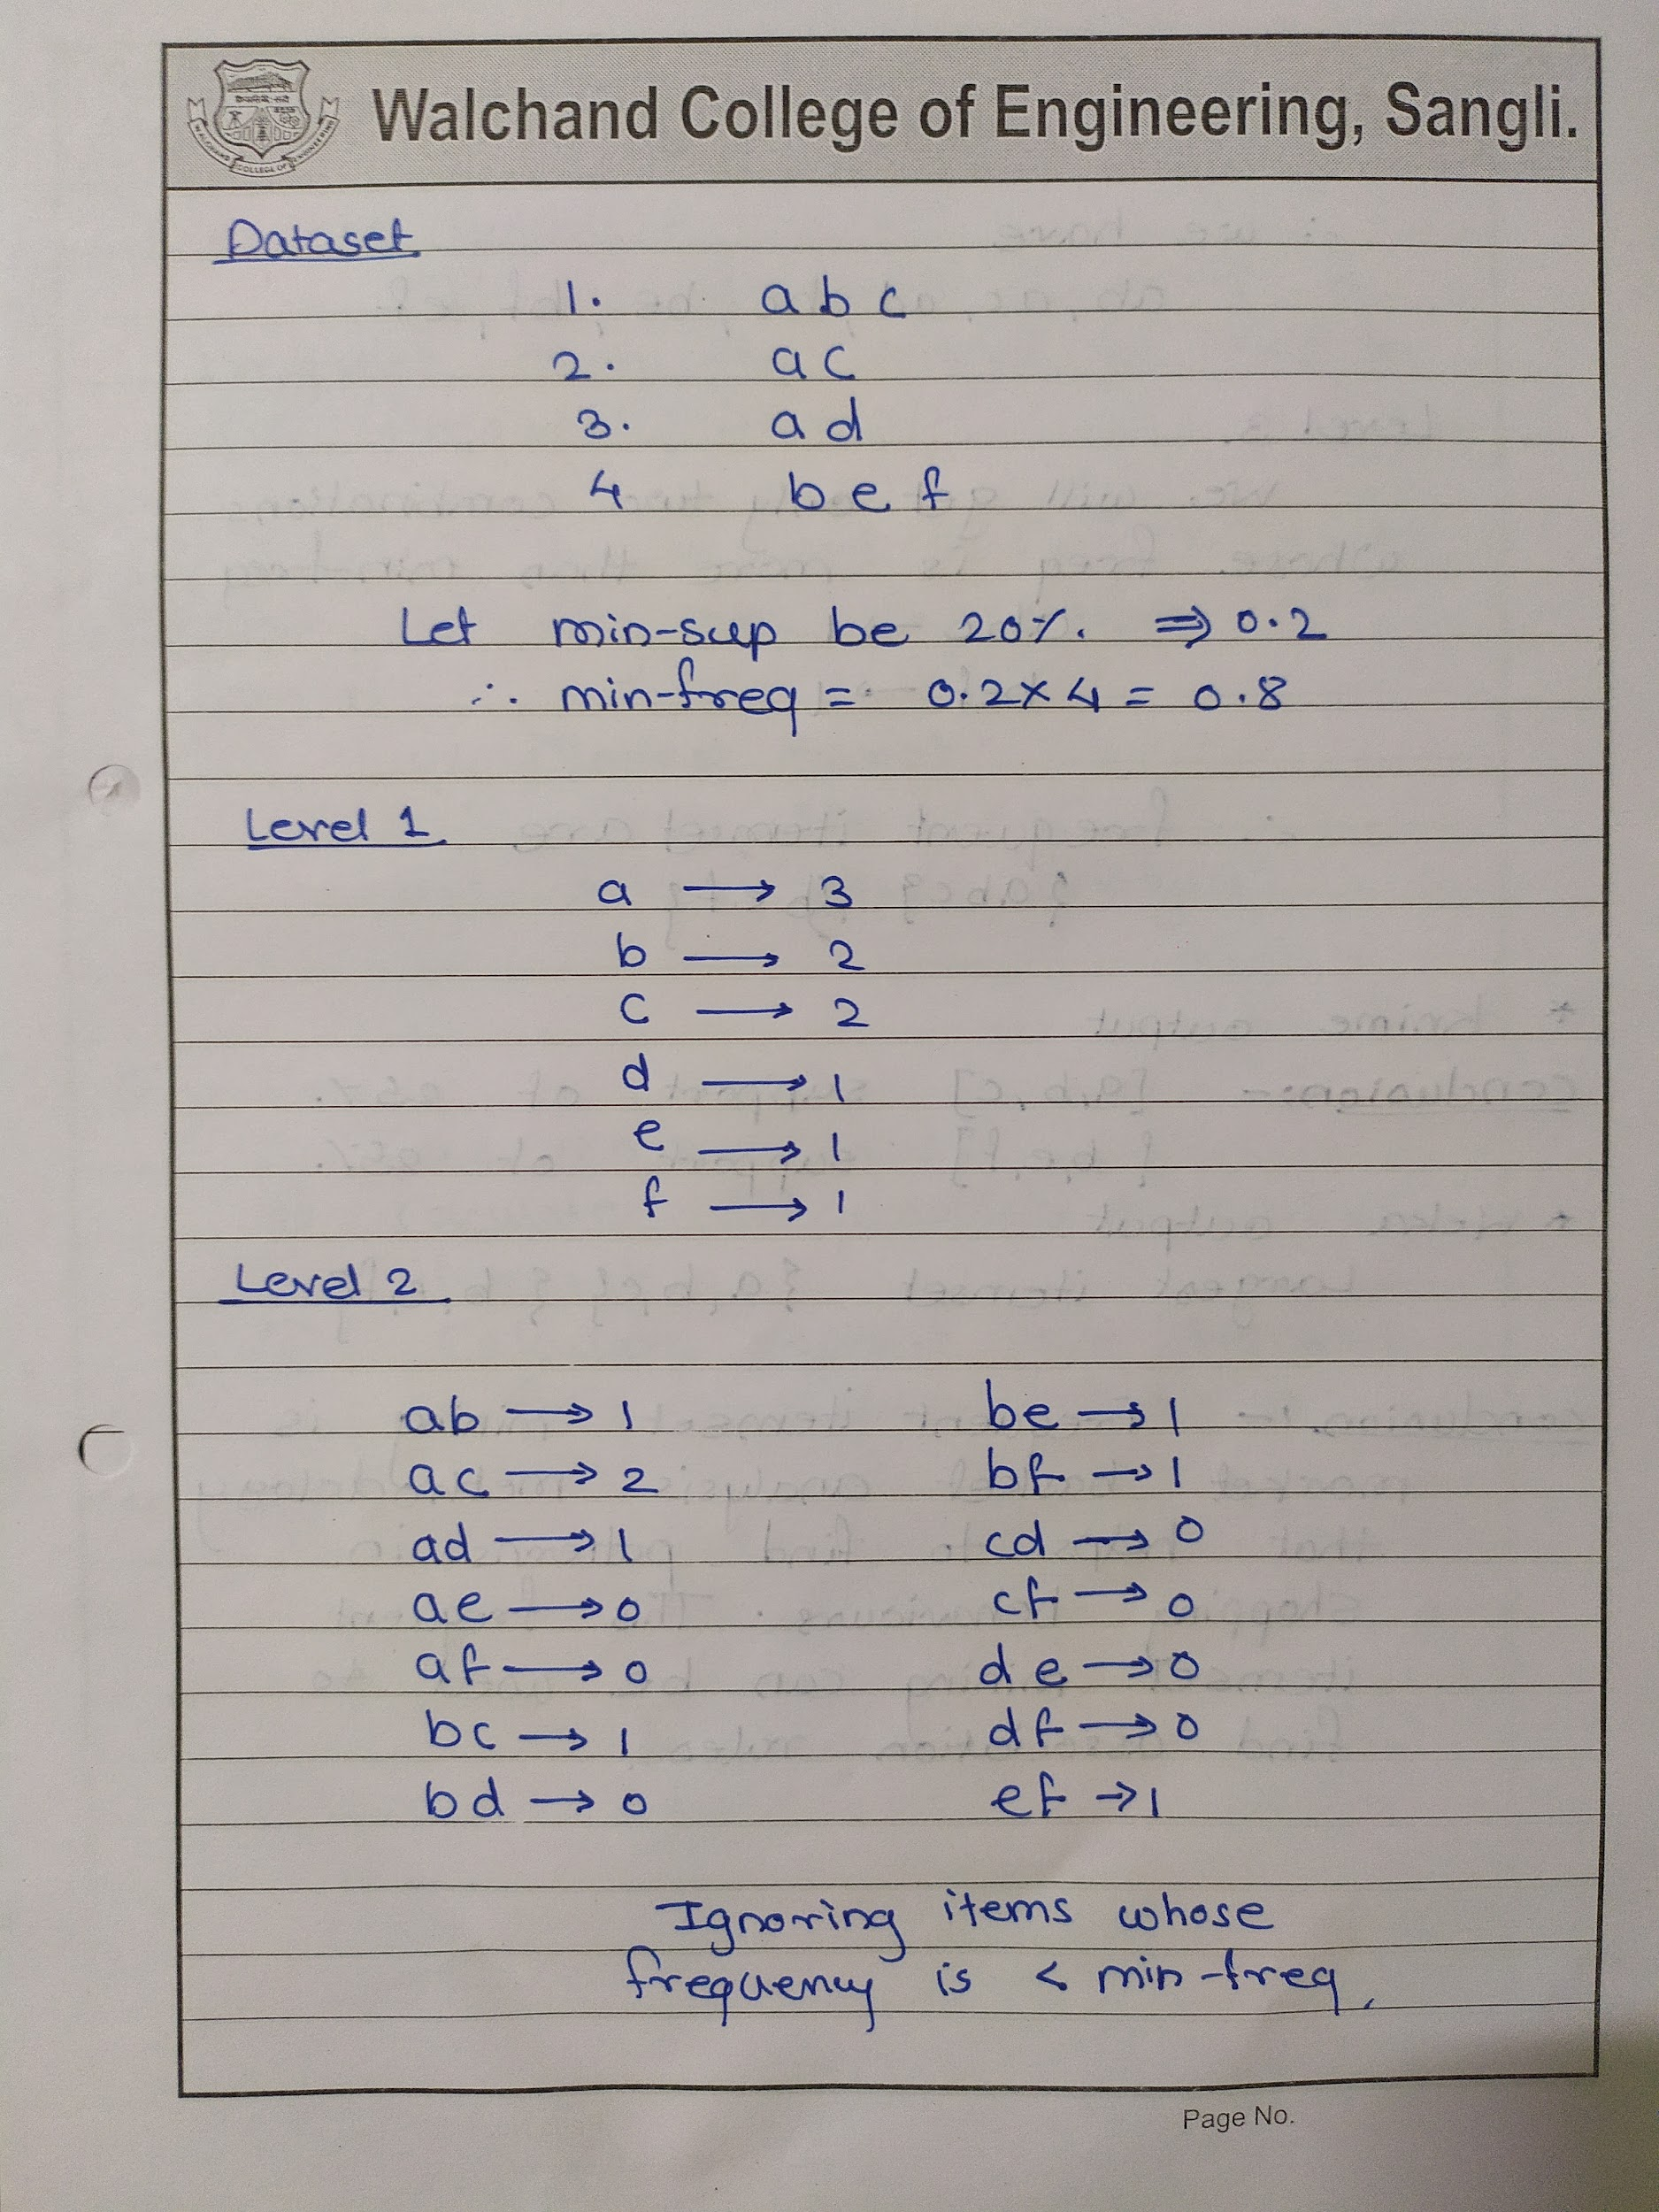 Walchand College of Engineering, Sangli.
Dataset
1. a b c
2. a c
3. a d
4 b e f
Let min-sup be 20%. ⇒ 0.2
∴ min-freq = 0.2 × 4 = 0.8
Level 1
a → 3
b → 2
c → 2
d → 1
e → 1
f → 1
Level 2
ab → 1
ac → 2
ad → 1
ae → 0
af → 0
bc → 1
bd → 0
be → 1
bf → 1
cd → 0
cf → 0
de → 0
df → 0
ef → 1
Ignoring items whose
frequency is < min-freq.
Page No.